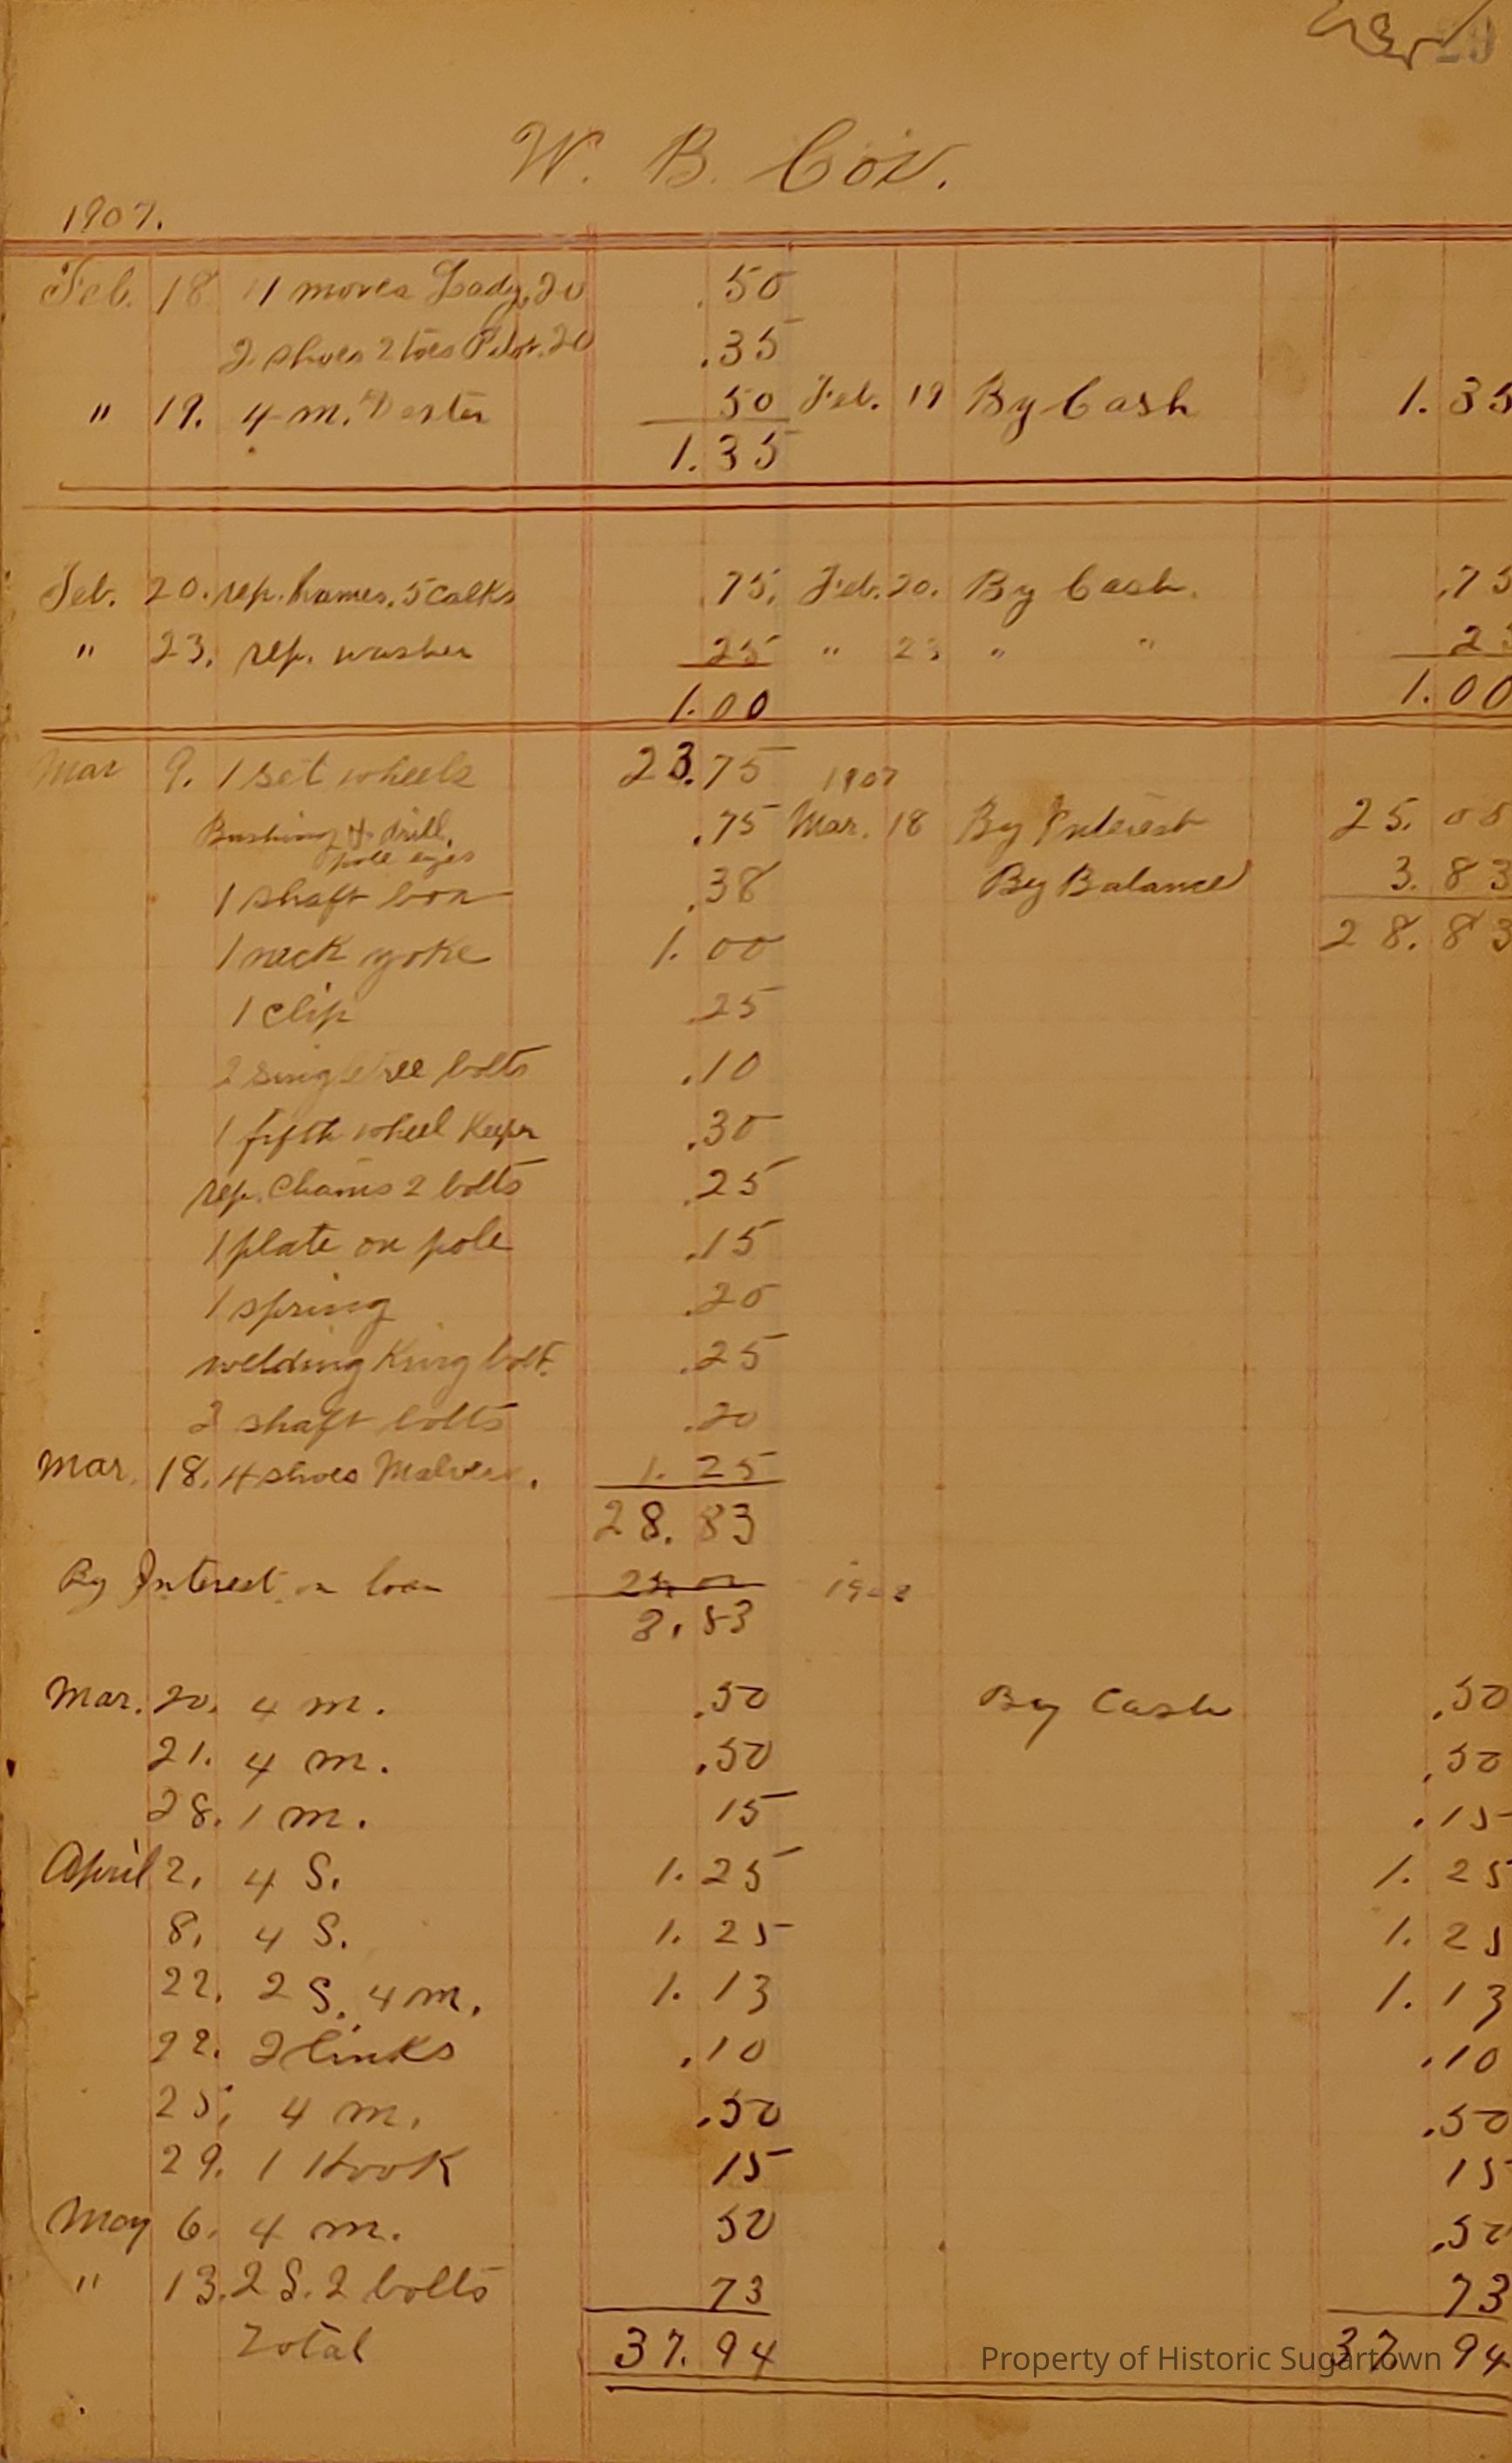 29
W. B. Cox.
1907.
Feb. 18 11 moves Lady, 20 .50
2 shoes 2 toes Pilot. 20 .35
" 19. 4 m. Dexter 50 Feb. 19 By Cash 1.35
1.35
Feb. 20. rep. hames. 5 calks 75. Feb. 20. By Cash. .75
" 23. rep. washer 25 " 23 " " 25
1.00 1.00
Mar 9. 1 set wheels 23.75 1907
Bushing & drill. .75 Mar. 18 By Interest 25.00
pole eyes
1 shaft box .38 By Balance 3.83
1 neck yoke 1.00 28.83
1 clip .25
2 singletree bolts .10
1 fifth wheel Keeper .30
rep. Chains 2 bolts .25
1 plate on pole .15
1 spring .20
welding King bolt. .25
2 shaft bolts .20
Mar. 18. 4 shoes 1.25
28.83
By Interest on loan 25.00
3.83
Mar. 20. 4 m. .50 By Cash .50
21. 4 m. .50 .50
28. 1 m. 15 .15
April 2, 4 S. 1.25 1.25
8, 4 S. 1.25 1.25
22. 2 S. 4 m. 1.13 1.13
22. 2 links .10 .10
25, 4 m. .50 .50
29. 1 Hook 15 15
May 6. 4 m. 50 .50
" 13. 2 S. 2 bolts 73 73
Total 37.94 37.94
Property of Historic Sugartown